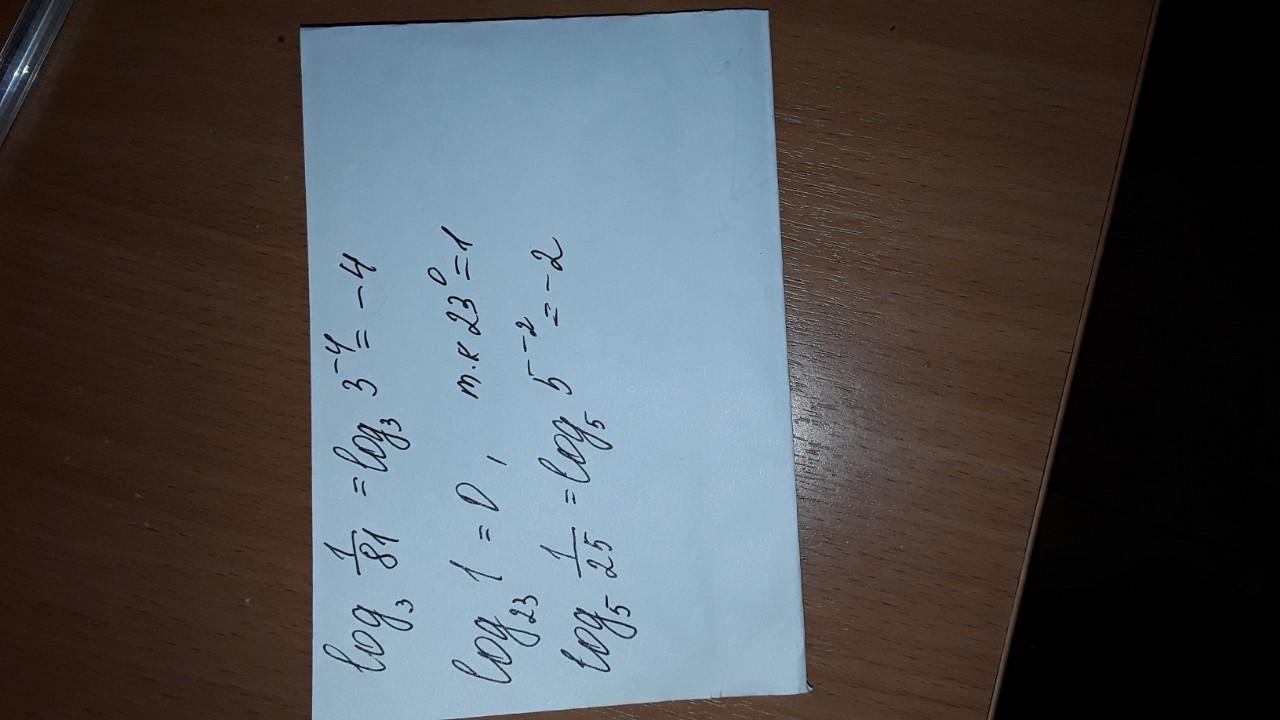 log₃ 1/81 = log₃ 3⁻⁴ = -4
log₂₃ 1 = 0, т.к 23⁰ = 1
log₅ 1/25 = log₅ 5⁻² = -2